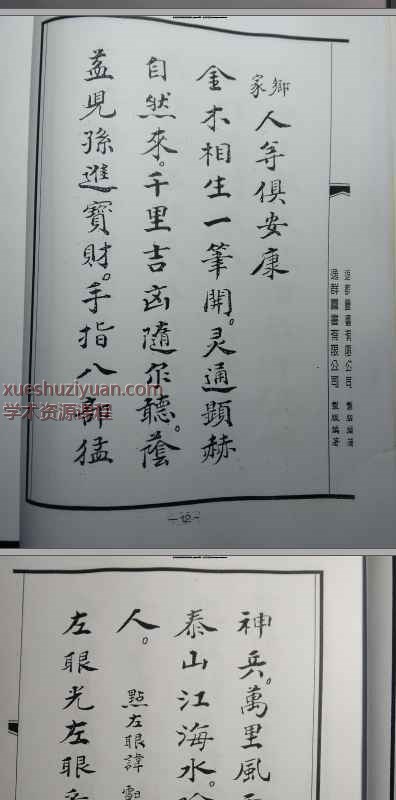 家鄉
人等俱安康
金木相生一筆開。灵通顕赫
自然來。千里吉凶隨你聽。蔭
益児孫進寶財。手指八部猛
逸群圖書有限公司 製版編著
逸群圖書有限公司 製版編著
xueshuziyuan.com
神兵。萬里風
泰山江海水。
人。 點左眼諱
左眼光左眼